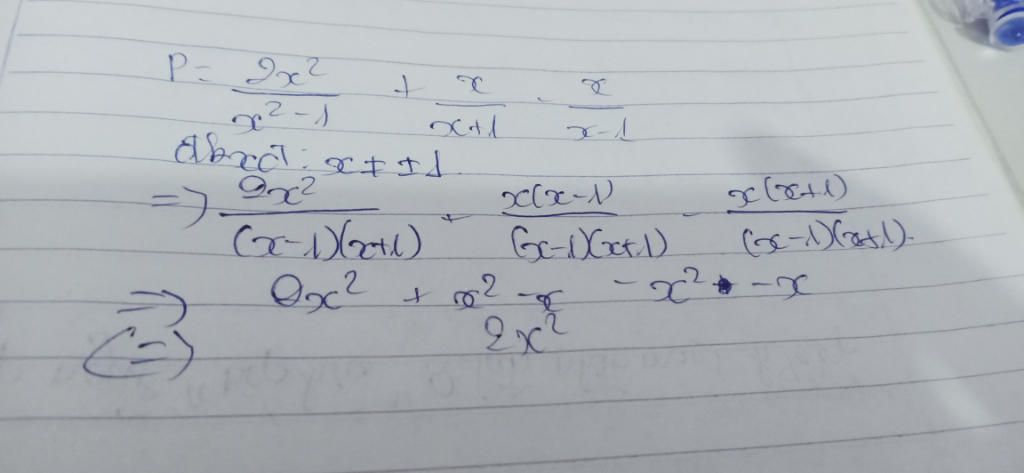 P = 2x²/(x²-1) + x/(x+1) - x/(x-1)
đkxđ: x ≠ ±1
=> 2x²/((x-1)(x+1)) + x(x-1)/((x-1)(x+1)) - x(x+1)/((x-1)(x+1)).
=> 2x² + x² - x - x² - x
(=) 2x²